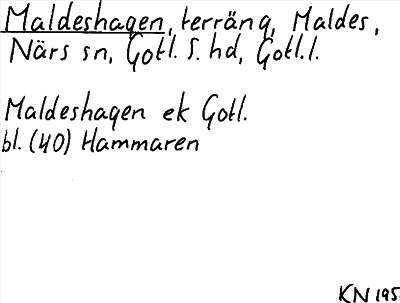 Maldeshagen, terräng, Maldes,
Närs sn, Gotl. S. hd, Gotl.l.
Maldeshagen ek Gotl.
bl. (40) Hammaren
KN 195